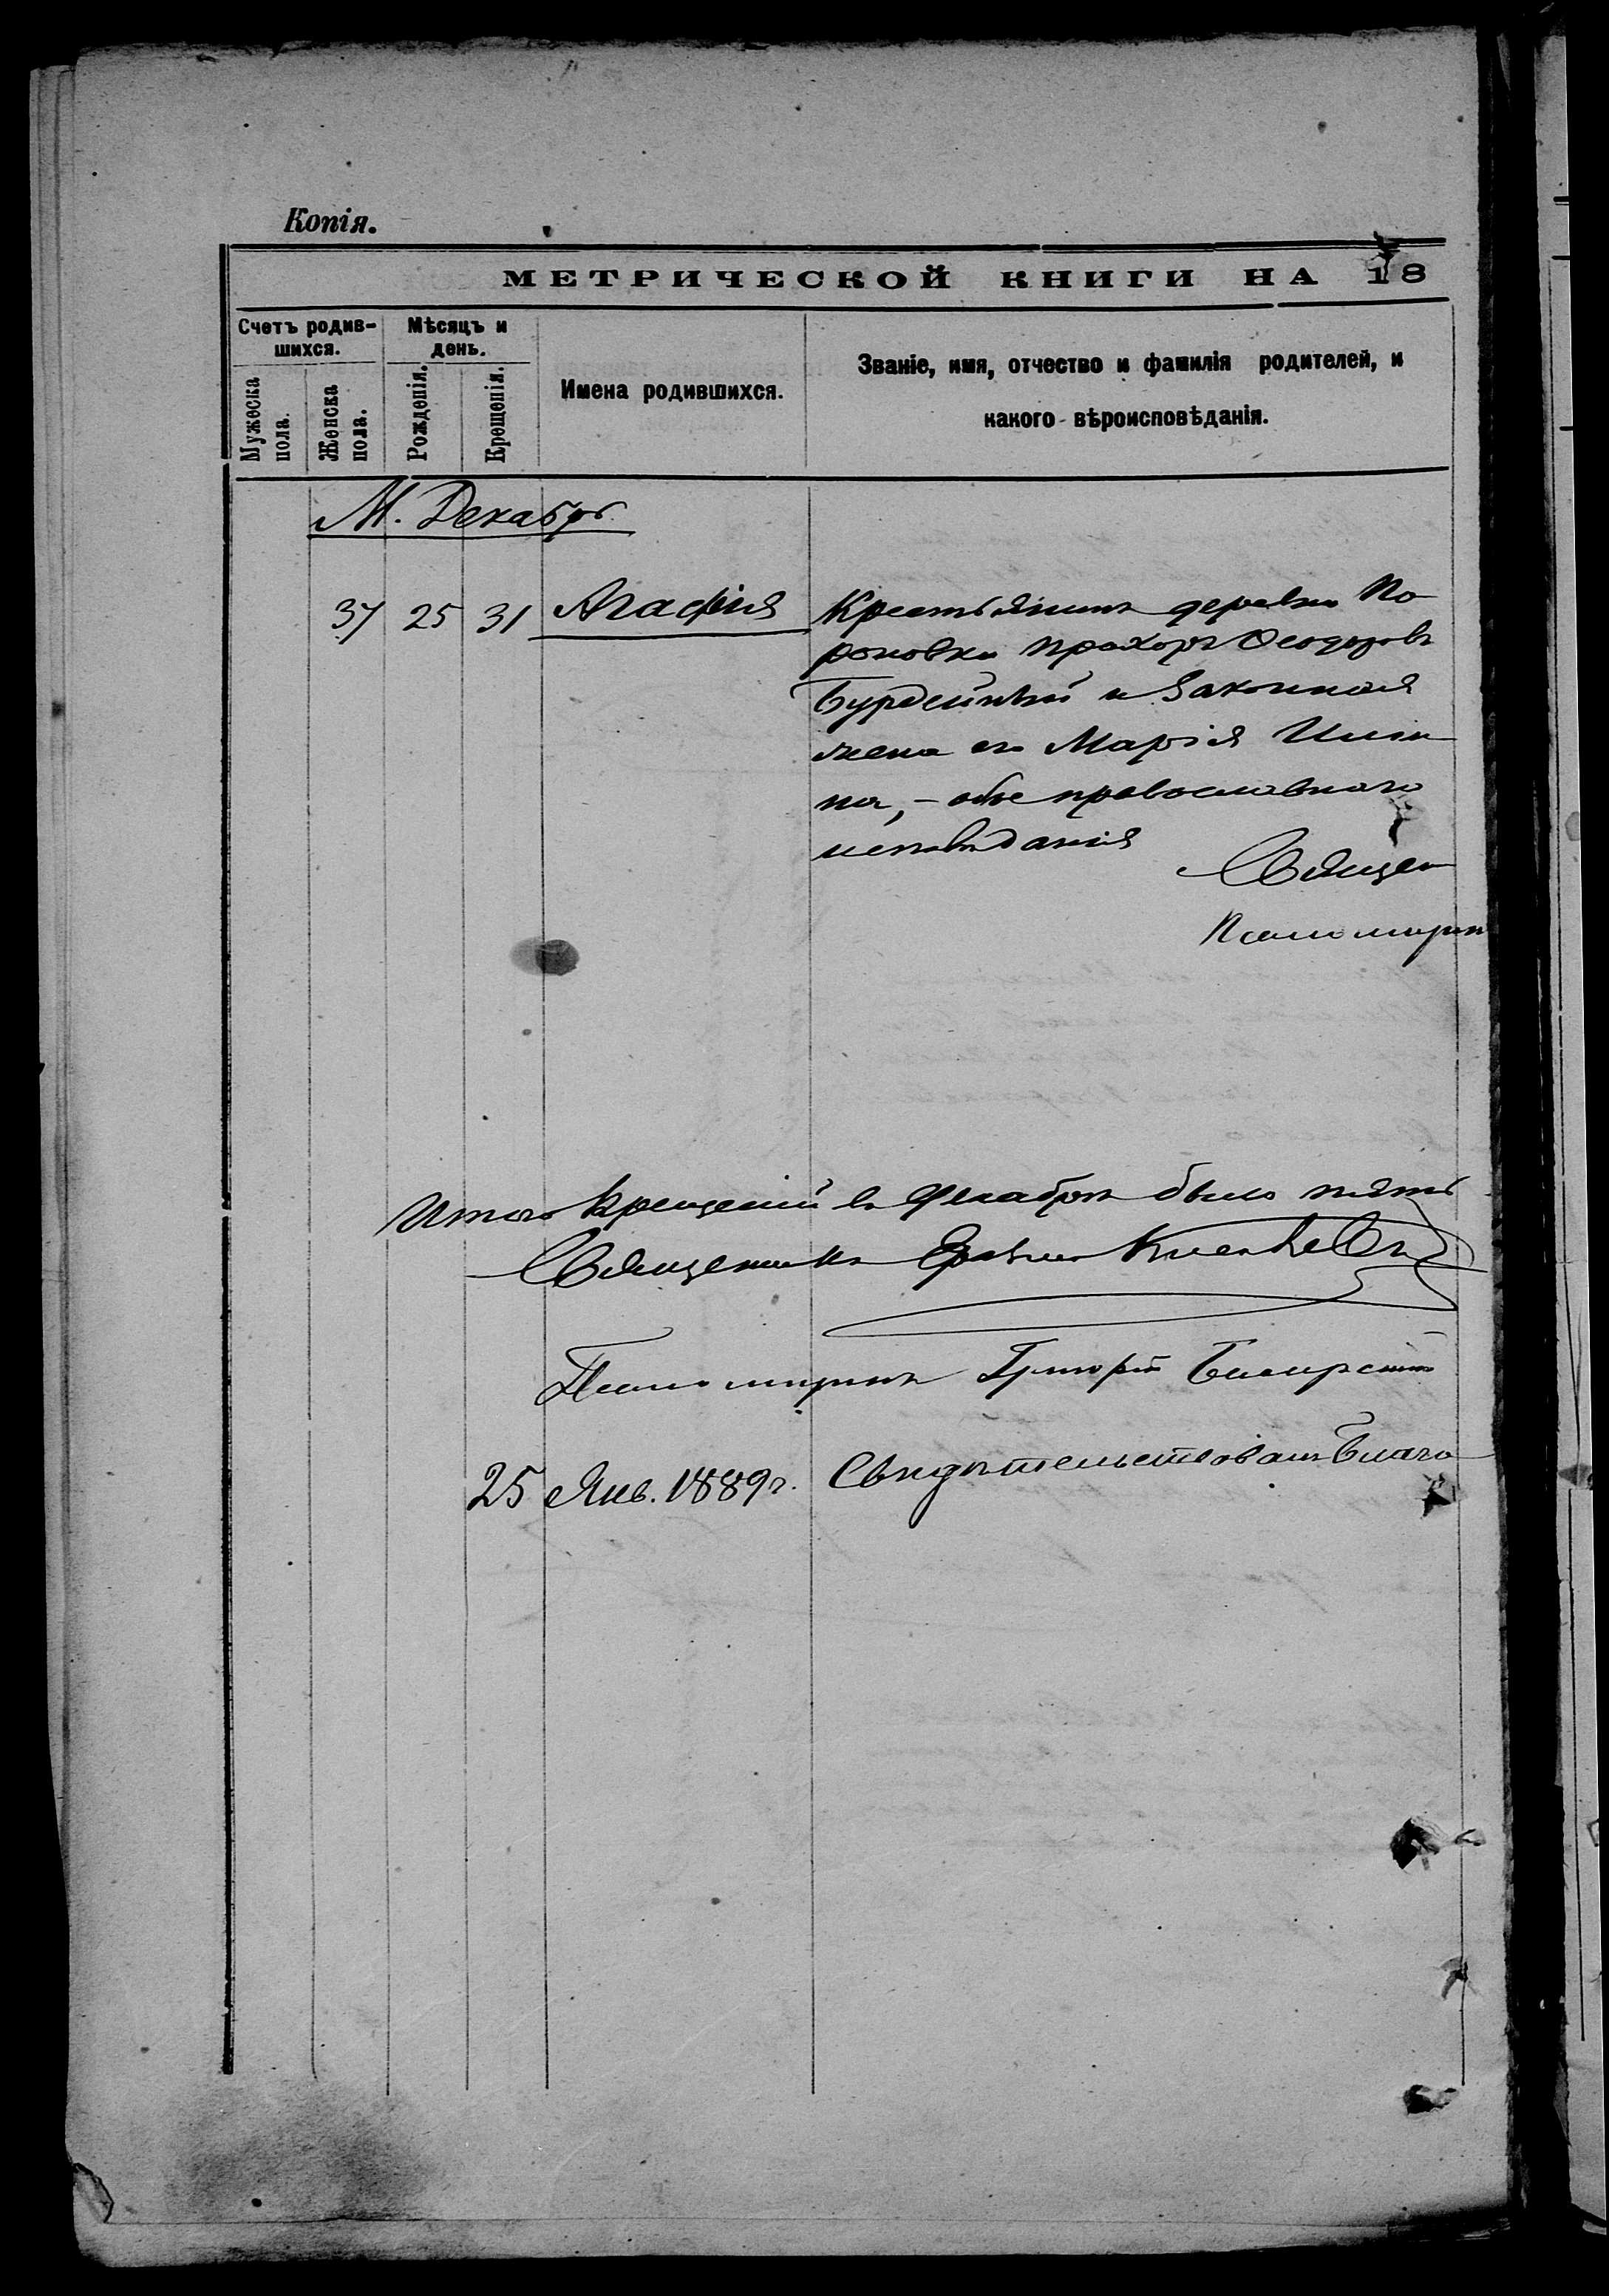 Копія.
МЕТРИЧЕСКОЙ КНИГИ НА 18
Счетъ родив-
шихся.
Мѣсяцъ и
день.
Мужеска
пола.
Женска
пола.
Рожденія.
Крещенія.
Имена родившихся.
Званіе, имя, отчество и фамилія родителей, и
какого вѣроисповѣданія.
М. Декабрь
37 25 31 Агафія
Крестьянинъ деревни По
роновки Прохоръ Ѳеодоровъ
Бурдейный и законная
жена его Марія
на, – обое православного
исповѣданія
Священ
Псаломщикъ
Итого крещеній въ Декабрѣ было пять
Священникъ
Псаломщикъ Григорій
25 Янв. 1889 г. Свидѣтельствовалъ Благо